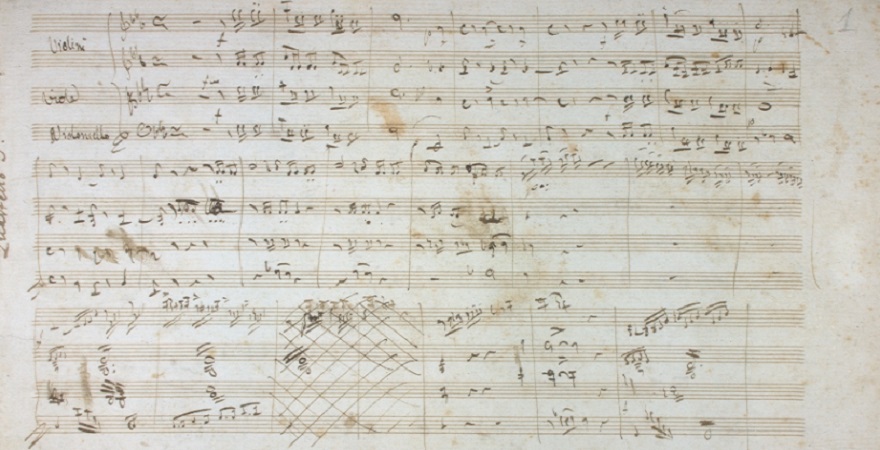 1
Violini
Viole
Violoncello
Quartetto 3.